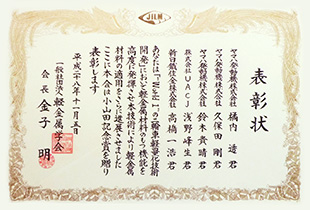 JILM
表彰状
ヤマハ発動機株式会社 橘内 透君
ヤマハ発動機株式会社 久保田 剛君
ヤマハ発動機株式会社 鈴木貴晴君
株式会社UACJ 浅野峰生君
新日鐵住金株式会社 高橋一浩君
開発において軽金属材料のもつ機能を
高度に発揮させ本技術により軽金属
材料の適用をさらに進展させました
ここに本会は小山田記念賞を贈り
表彰します
平成二十八年十一月五日
一般社団法人 軽金属学会
会長 金子 明